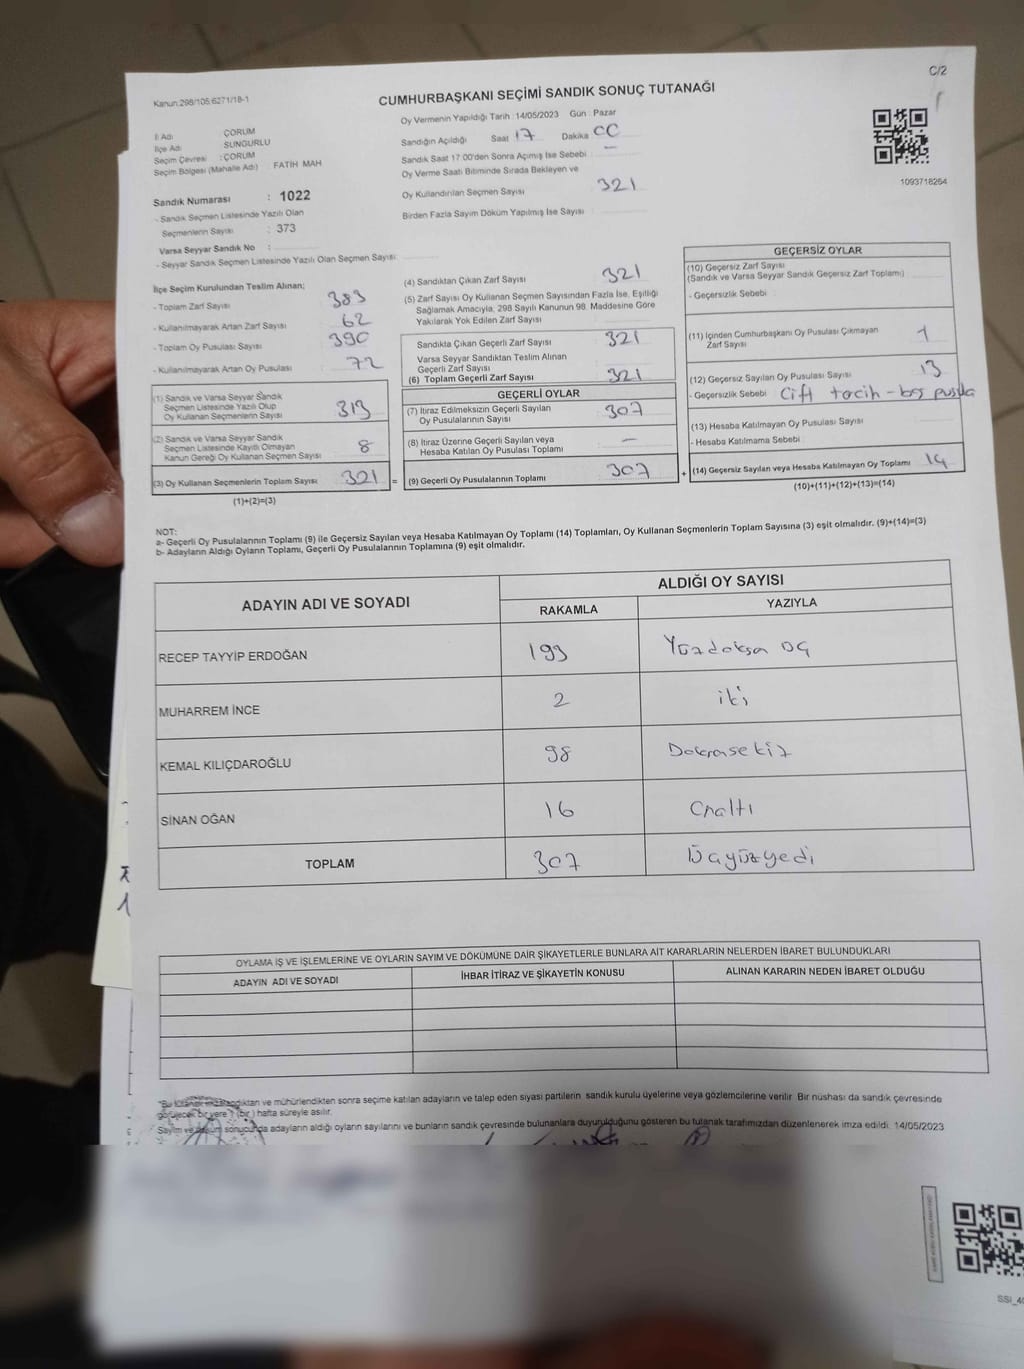 C/2
Kanun.298/105.6271/18-1
CUMHURBAŞKANI SEÇİMİ SANDIK SONUÇ TUTANAĞI
İl Adı : ÇORUM
İlçe Adı : SUNGURLU
Seçim Çevresi : ÇORUM
Seçim Bölgesi (Mahalle Adı) : FATİH MAH
Sandık Numarası : 1022
- Sandık Seçmen Listesinde Yazılı Olan
Seçmenlerin Sayısı : 373
Varsa Seyyar Sandık No :
- Seyyar Sandık Seçmen Listesinde Yazılı Olan Seçmen Sayısı:
Oy Vermenin Yapıldığı Tarih : 14/05/2023 Gün : Pazar
Sandığın Açıldığı Saat 17 Dakika 00
Sandık Saat 17:00'den Sonra Açımış İse Sebebi : -
Oy Verme Saati Bitiminde Sırada Bekleyen ve
Oy Kullandırılan Seçmen Sayısı 321
Birden Fazla Sayım Döküm Yapılmış İse Sayısı :
1093718264
İlçe Seçim Kurulundan Teslim Alınan;
- Toplam Zarf Sayısı 383
- Kullanılmayarak Artan Zarf Sayısı 62
- Toplam Oy Pusulası Sayısı 390
- Kullanılmayarak Artan Oy Pusulası 72
(1) Sandık ve Varsa Seyyar Sandık
Seçmen Listesinde Yazılı Olup
Oy Kullanan Seçmenlerin Sayısı 313
(2) Sandık ve Varsa Seyyar Sandık
Seçmen Listesinde Kayıtlı Olmayan
Kanun Gereği Oy Kullanan Seçmen Sayısı 8
(3) Oy Kullanan Seçmenlerin Toplam Sayısı 321 =
(1)+(2)=(3)
(4) Sandıktan Çıkan Zarf Sayısı 321
(5) Zarf Sayısı Oy Kullanan Seçmen Sayısından Fazla İse, Eşitliği
Sağlamak Amacıyla; 298 Sayılı Kanunun 98. Maddesine Göre
Yakılarak Yok Edilen Zarf Sayısı
Sandıkta Çıkan Geçerli Zarf Sayısı 321
Varsa Seyyar Sandıktan Teslim Alınan
Geçerli Zarf Sayısı
(6) Toplam Geçerli Zarf Sayısı 321
GEÇERLİ OYLAR
(7) İtiraz Edilmeksizin Geçerli Sayılan
Oy Pusulalarının Sayısı 307
(8) İtiraz Üzerine Geçerli Sayılan veya
Hesaba Katılan Oy Pusulası Toplamı -
(9) Geçerli Oy Pusulalarının Toplamı 307 +
GEÇERSİZ OYLAR
(10) Geçersiz Zarf Sayısı
(Sandık ve Varsa Seyyar Sandık Geçersiz Zarf Toplamı)
- Geçersizlik Sebebi :
(11) İçinden Cumhurbaşkanı Oy Pusulası Çıkmayan
Zarf Sayısı 1
(12) Geçersiz Sayılan Oy Pusulası Sayısı 13
- Geçersizlik Sebebi Çift tercih - boş pusula
(13) Hesaba Katılmayan Oy Pusulası Sayısı
- Hesaba Katılmama Sebebi
(14) Geçersiz Sayılan veya Hesaba Katılmayan Oy Toplamı 14
(10)+(11)+(12)+(13)=(14)
NOT:
a- Geçerli Oy Pusulalarının Toplamı (9) ile Geçersiz Sayılan veya Hesaba Katılmayan Oy Toplamı (14) Toplamları, Oy Kullanan Seçmenlerin Toplam Sayısına (3) eşit olmalıdır. (9)+(14)=(3)
b- Adayların Aldığı Oyların Toplamı, Geçerli Oy Pusulalarının Toplamına (9) eşit olmalıdır.
ADAYIN ADI VE SOYADI ALDIĞI OY SAYISI
RAKAMLA YAZIYLA
RECEP TAYYİP ERDOĞAN 199
MUHARREM İNCE 2 iki
KEMAL KILIÇDAROĞLU 98 Doksansekiz
SİNAN OĞAN 16 Onaltı
TOPLAM 307 Üçyüzyedi
OYLAMA İŞ VE İŞLEMLERİNE VE OYLARIN SAYIM VE DÖKÜMÜNE DAİR ŞİKAYETLERLE BUNLARA AİT KARARLARIN NELERDEN İBARET BULUNDUKLARI
ADAYIN ADI VE SOYADI İHBAR İTİRAZ VE ŞİKAYETİN KONUSU ALINAN KARARIN NEDEN İBARET OLDUĞU
"Bu mühürlendikten sonra seçime katılan adayların ve talep eden siyasi partilerin sandık kurulu üyelerine veya gözlemcilerine verilir. Bir nüshası da sandık çevresinde
görülecek bir yere 1 (bir) hafta süreyle asılır.
Sayım ve döküm sonucunda adayların aldığı oyların sayılarını ve bunların sandık çevresinde bulunanlara duyurulduğunu gösteren bu tutanak tarafımızdan düzenlenerek imza edildi. 14/05/2023